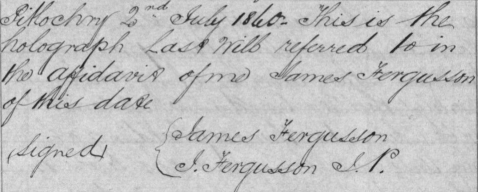 Pitlochry 2nd July 1860. This is the
holograph Last Will referred to in
the afidavit of me James Fergusson
of this date
(signed) { James Fergusson
J. Fergusson J. P.